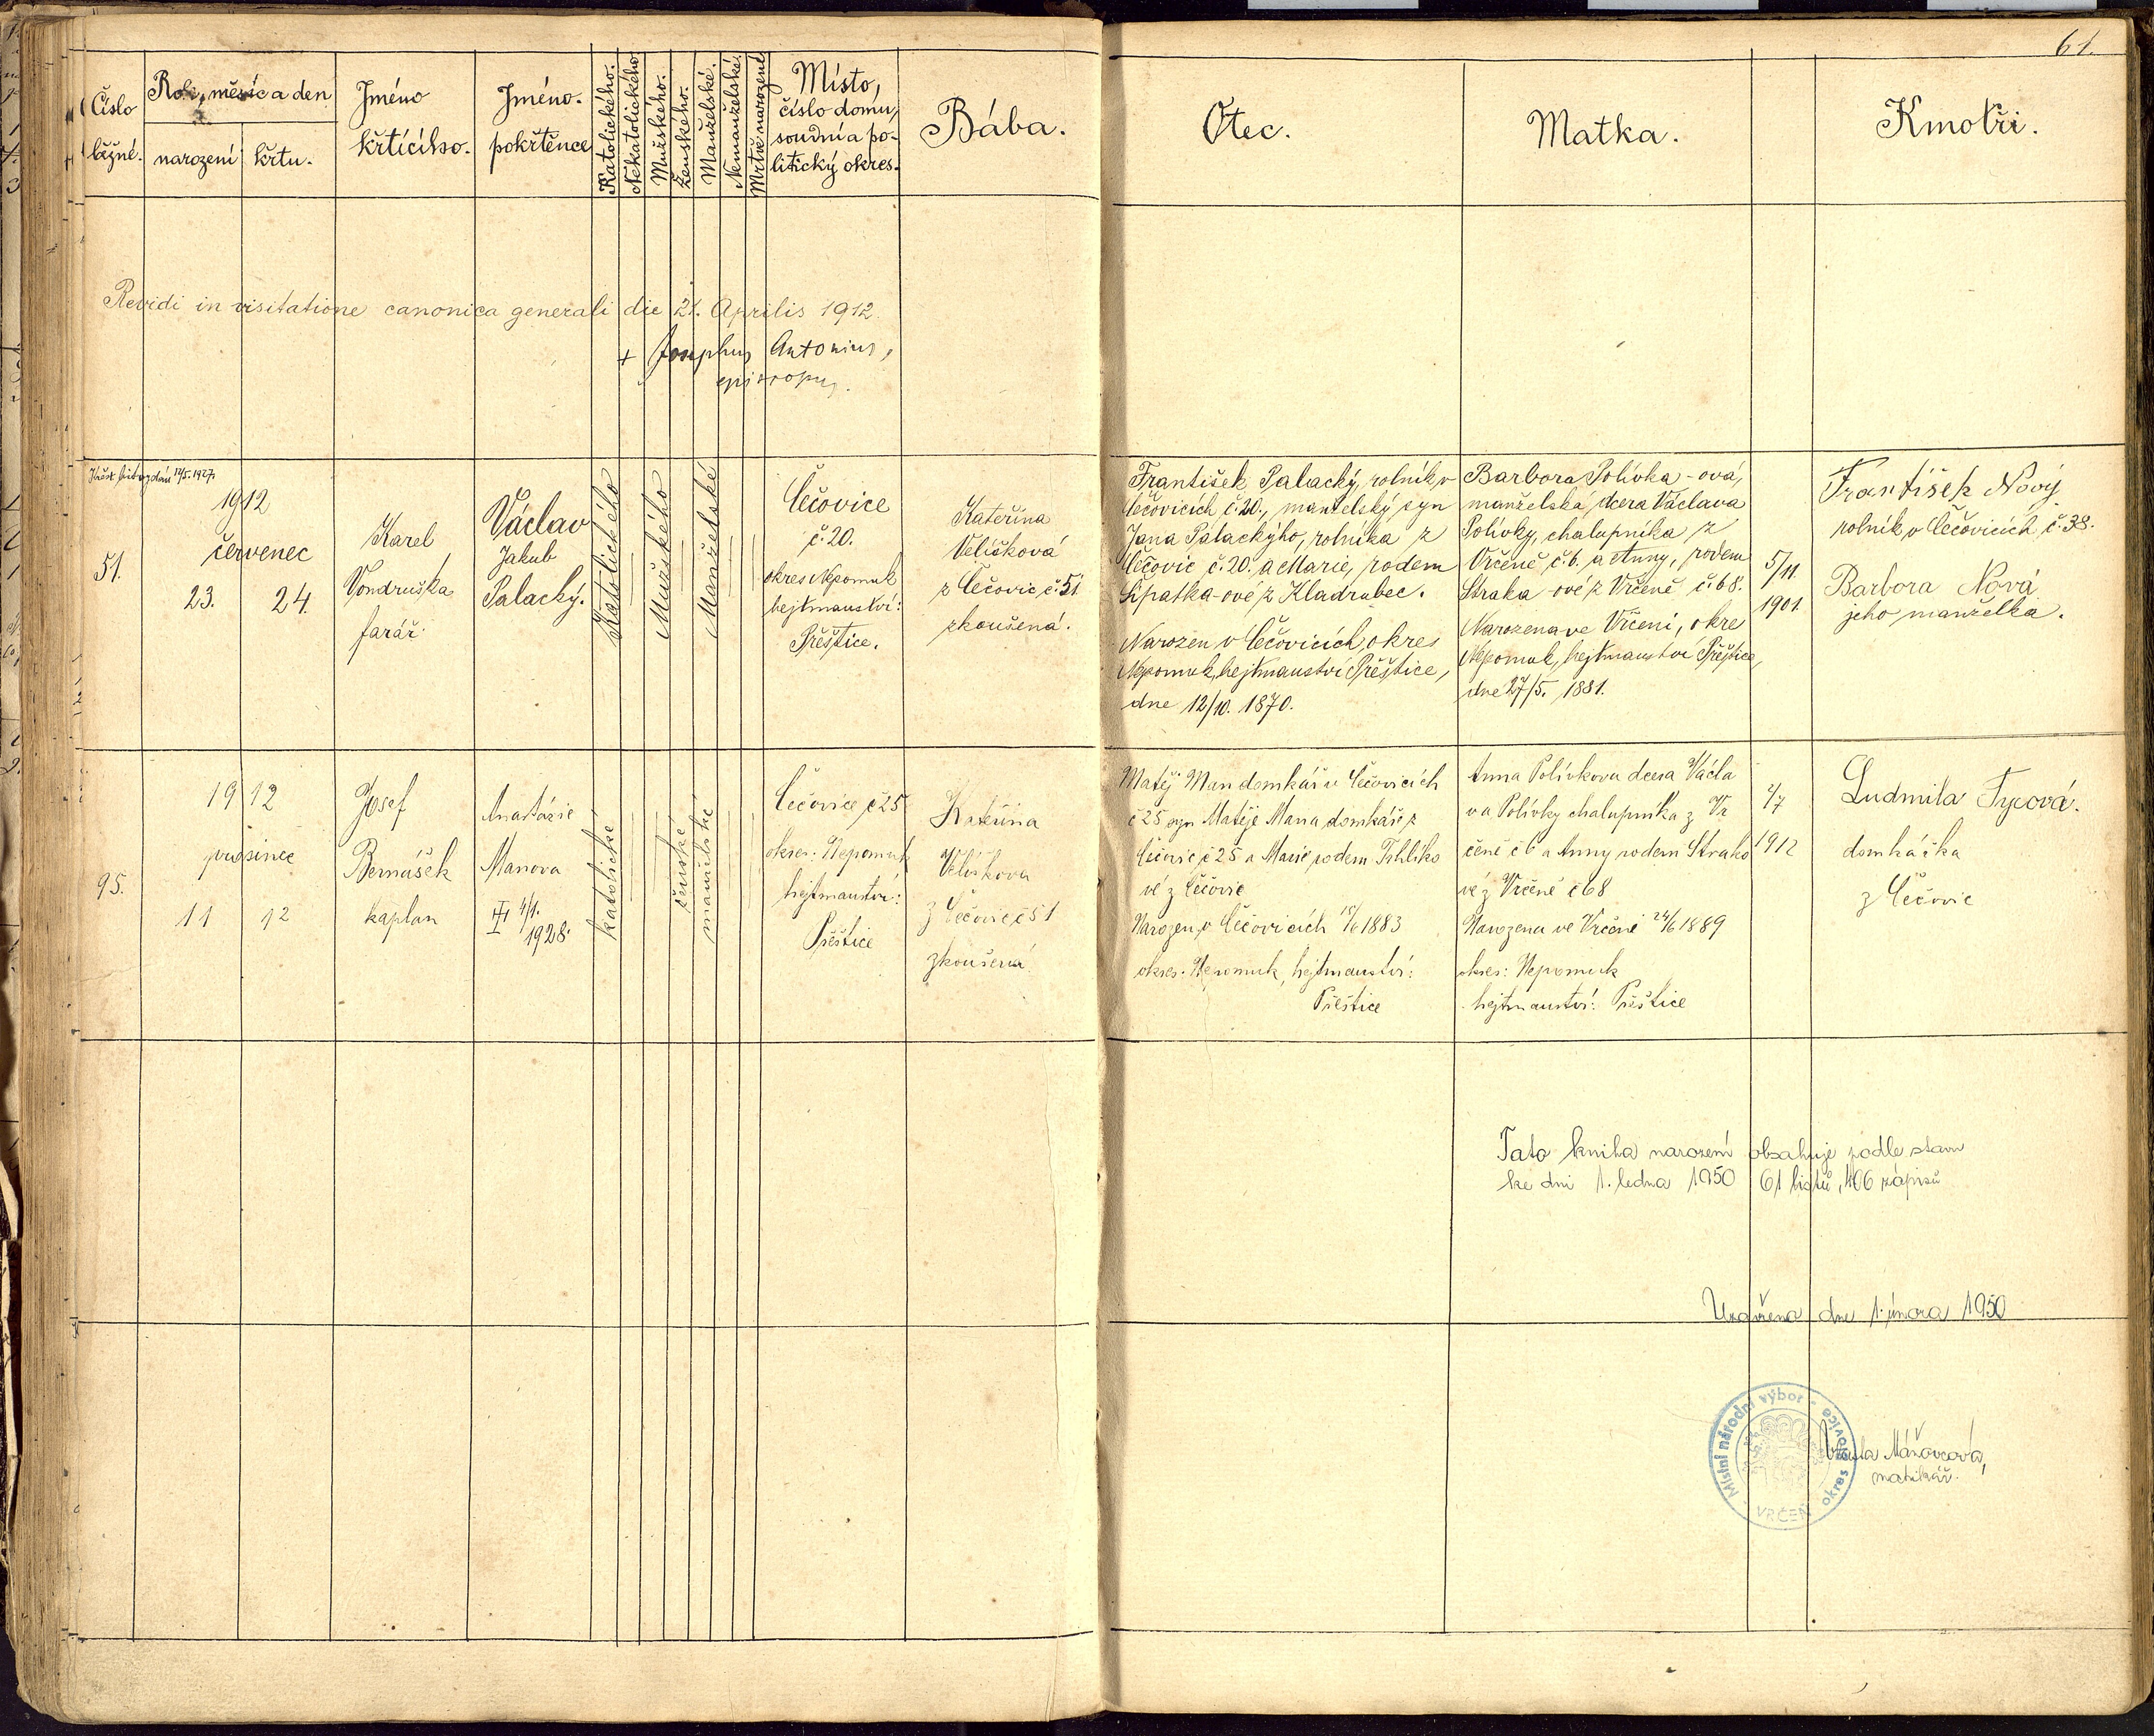 61.
Číslo
běžné.
Rok, měsíc a den
narození
křtu.
Jméno
křtícího.
Jméno.
pokřtěnce
Katolického.
Nekatolického
Mužského.
Ženského.
Manželské.
Nemanželské.
Mrtvě narozené
Místo,
číslo domu,
soudní a po-
litický okres.
Bába.
Otec.
Matka.
Kmotři.
Revidi in visitatione canonica generali die 21. Aprilis 1912
+ Josephus Antonius,
episcopus.
Křest. list vydán 12/5. 1927.
51.
1912
červenec
23. 24.
Karel
Vondruška
farář.
Václav
Jakub
Palacký.
Katolického
Mužského
Manželské
Čečovice
č. 20.
okres Nepomuk
hejtmanství:
Přeštice.
Kateřina
Velišková
z Čečovic č. 51
zkoušená.
František Palacký, rolník v
Čečovicích č. 20., manželský syn
Jana Palackýho, rolníka z
Čečovic č. 20. a Marie, rodem
Šipatka-ové z Kladrubec.
Narozen v Čečovicích, okres
Nepomuk, hejtmanství Přeštice,
dne 12/10. 1870.
Barbora Polívka-ová,
manželská dcera Václava
Polívky, chalupníka z
Vrčeně č. 6. a Anny, rodem
Straka-ové z Vrčeně č. 68.
Narozena ve Vrčeni, okre
Nepomuk, hejtmanství Přeštice,
dne 27/5. 1881.
5/11
1901.
František Nový
rolník v Čečovicích č. 38.
Barbora Nová
jeho manželka.
95.
1912
prosinec
11 12
Josef
Bernášek
kaplan
Anatázie
Manova
4/1.
1928.
katolické
ženské
manželské
Čečovice č 25
okres: Nepomuk
hejtmanství:
Přeštice
Kateřina
Velišková
z Čečovic č 51
zkoušená
Matěj Man domkář v Čečovicích
č 25 syn Matěje Mana domkáře z
Čečovic č 25 a Marie rodem Tehlíko
vé z Čečovic
Narozen v Čečovicích 1883
okres: Nepomuk, hejtmanství:
Přeštice
Anna Polívkova dcera Václa
va Polívky chalupníka z Vr
čeně č 6 a Anny rodem Strako
vé z Vrčeně č 68
Narozena ve Vrčeni 24/6 1889
okres: Nepomuk
hejtmanství: Přeštice
2/7
1912
Ludmila Tycová.
domkářka
z Čečovic
Tato kniha narození obsahuje podle stavu
ke dni 1. ledna 1950 61 listů, 406 zápisů
Uzavřena dne 1. února 1950
Místní národní výbor - okres
VRČEŇ
matrikář.